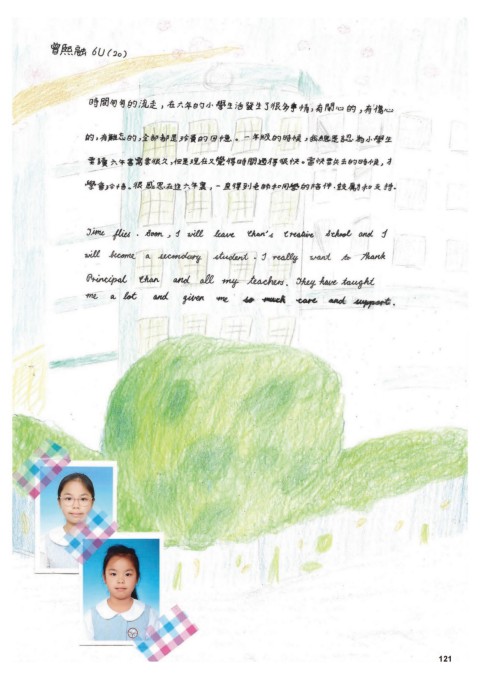 曾熙融 6U(20)
時間匆匆的流走，在六年的小學生活發生了很多事情，有開心的，有傷心
的，有難忘的，全部都是珍貴的回憶。一年級的時候，我總是認為小學生
要讀六年書需要很久，但是現在又覺得時間過得很快。當快要失去的時候，才
學會珍惜。很感恩在這六年裏，一直得到老師和同學的陪伴、鼓勵和支持。
Time flies. Soon, I will leave Chan's Creative School and I
will become a secondary student. I really want to thank
Principal Chan and all my teachers. They have taught
me a lot and given me so much care and support.
121